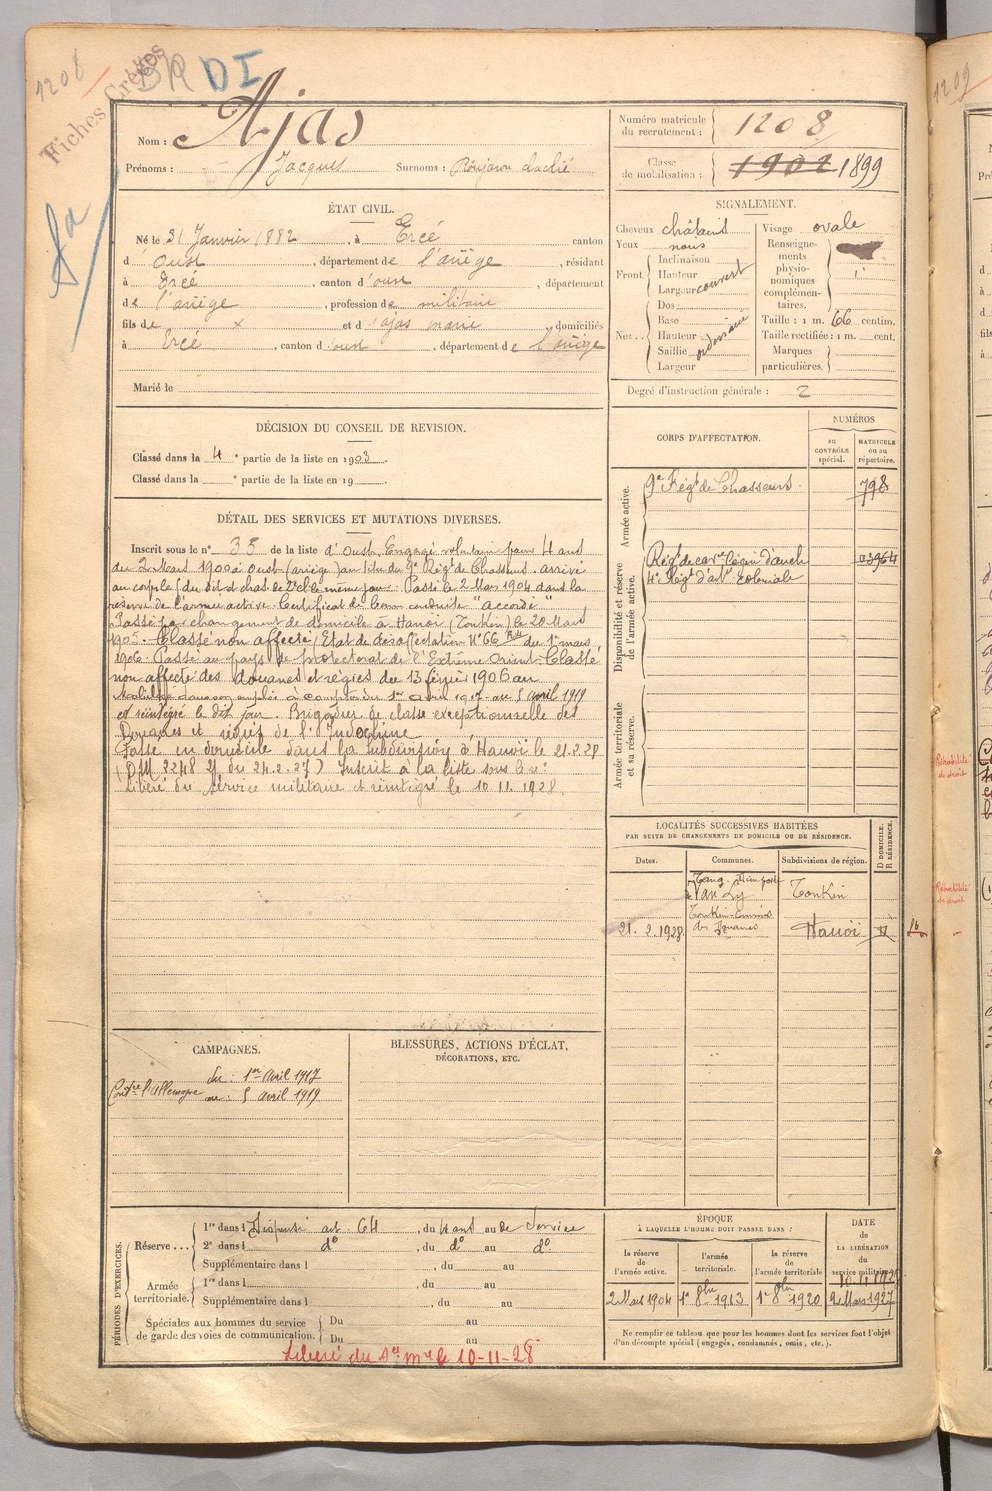 1208
Fiches Créées
DI
Nom : Ajas
Prénoms : Jacques Surnoms :
Numéro matricule du recrutement : 1208
Classe de mobilisation : 1902 1899
ÉTAT CIVIL.
Né le 31 Janvier 1882, à Ercé canton
d'Oust, département de l'ariège, résidant
à Ercé, canton d'oust, département
de l'ariège, profession de militaire
fils de x et d'ajas marie, domiciliés
à Ercé, canton d'oust, département de l'ariège
Marié le
SIGNALEMENT.
Cheveux châtains
Yeux
Front. Inclinaison
Hauteur
Largeur couvert
Nez . . Dos
Base
Hauteur ordinaire
Saillie
Largeur
Visage ovale
Renseignements physionomiques complémentaires.
Taille : 1 m. 66 centim.
Taille rectifiée : 1 m. cent.
Marques particulières.
Degré d'instruction générale : 2
DÉCISION DU CONSEIL DE REVISION.
Classé dans la 4e partie de la liste en 1903.
Classé dans la e partie de la liste en 19 .
CORPS D'AFFECTATION.
NUMÉROS
au CONTRÔLE spécial.
MATRICULE ou au répertoire.
Armée active.
9e Régt de Chasseurs. 798
Disponibilité et réserve de l'armée active.
Régt de cavie Légère d'auch 3964
4e Régt d'arte coloniale
Armée territoriale et sa réserve.
DÉTAIL DES SERVICES ET MUTATIONS DIVERSES.
Inscrit sous le n° 35 de la liste d'Oust. Engagé volontaire pour 4 ans
du 2 Mars 1900 à Oust (ariège) au titre du 9e Régt de Chasseurs. arrivé
au corps le dit jour, chas. de 2e cl. le même jour. Passé le 2 Mars 1904 dans la
réserve de l'armée active. Certificat de bonne conduite "accordé"
Passé par changement de domicile à Hanoï (Tonkin) le 20 Mars
1905. Classé non affecté (Etat de désaffectation N° 66 du 1er mars
1906. Passé au pays de protectorat de l'Extrême Orient. Classé
non affecté des douanes et régies du 13 février 1906 au
Mobilisé dans son emploi à compter du 1er avril 1917 au 5 avril 1919
et réintégré le dit jour. Brigadier de classe exceptionnelle des
Douanes et régies de l'Indochine
Passé en domicile dans la subdivision à Hanoï le 21.2.28
(DM 2248 du 24.2.27) Inscrit à la liste sous le n°
Libéré du service militaire et réintégré le 10 11. 1928.
LOCALITÉS SUCCESSIVES HABITÉES
PAR SUITE DE CHANGEMENTS DE DOMICILE OU DE RÉSIDENCE.
Dates. Communes. Subdivisions de région. D DOMICILE. R RÉSIDENCE.
Van Ly Tonkin
Tonkin-Commis
21. 2. 1928 des Douanes Hanoï
CAMPAGNES.
Contre l'Allemagne du : 1er Avril 1917
au : 5 avril 1919
BLESSURES, ACTIONS D'ÉCLAT,
DÉCORATIONS, ETC.
PÉRIODES D'EXERCICES.
Réserve . . . 1re dans l Dispensé art. 64, du 4 ans au de Service
2e dans l d°, du d° au d°
Supplémentaire dans l , du au
Armée territoriale. 1re dans l , du au
Supplémentaire dans l , du au
Spéciales aux hommes du service de garde des voies de communication. Du au
Du au
Libéré du Sce mre le 10-11-28
ÉPOQUE
À LAQUELLE L'HOMME DOIT PASSER DANS :
la réserve de l'armée active. l'armée territoriale. la réserve de l'armée territoriale
DATE de LA LIBÉRATION du service militaire
10.11.1928
2 Mars 1904 1er 8bre 1913 1er 8bre 1920 2 Mars 1927
Ne remplir ce tableau que pour les hommes dont les services font l'objet
d'un décompte spécial (engagés, condamnés, omis, etc.).
1209
Réhabilité de droit
Réhabilité de droit